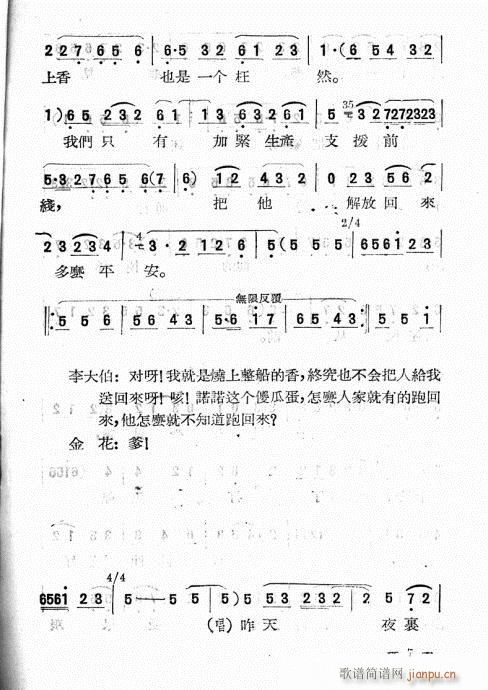 2 2 7 6 5 6 | 6·5 3 2 6 1 2 3 | 1·(6 5 4 3 2
上香 也是一个枉 然。
1) 6 5 2 3 2 6 1 | 1 3 6 3 2 6 1 | 5 35 3 2 7 2 7 2 3 2 3
我們只 有 加緊生產 支援前
5·3 2 7 6 5 6 (7 | 6) 1 2 3 1 2 | 0 2 3 5 6 2
綫， 把他 解放回來
2/4
2 3 2 3 4 | 3·2 1 2 6 | 5 (5 5 | 6 5 6 1 5 6 5
多麽平安。
無限反覆
5 5 6 | 5 6 4 3 | 5·6 1 7 | 6 5 4 3 | 5 5 1
李大伯：对呀！我就是燒上整船的香，終究也不会把人給我
送回來呀！咳！諾諾这个傻瓜蛋，怎麽人家就有的跑回
來，他怎麽就不知道跑回來？
金 花：爹！
4/4
6 5 6 1 2 3 | 5 - 5 5 | 5) 5 3 2 3 2 | 5 7 2
(唱)昨天 夜裏
— 7 —
歌谱简谱网
jianpu.cn